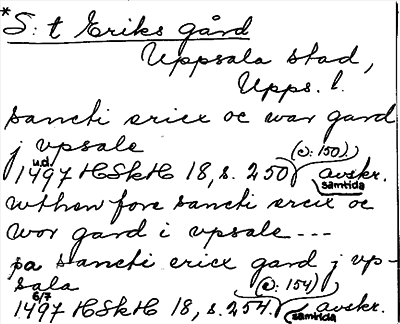 *S:t Eriks gård
Uppsala stad,
Upps. l.
sancti ericx oc war gard
j vpsale
u.d. (c: 150)
1497 HSkH 18, s. 250 avskr.
samtida
wthen fore sancti ercix oc
wor gard i vpsale ---
pa sancti ericx gard j vp-
sala
6/7 (c: 154)
1497 HSkH 18, s. 254. avskr.
samtida